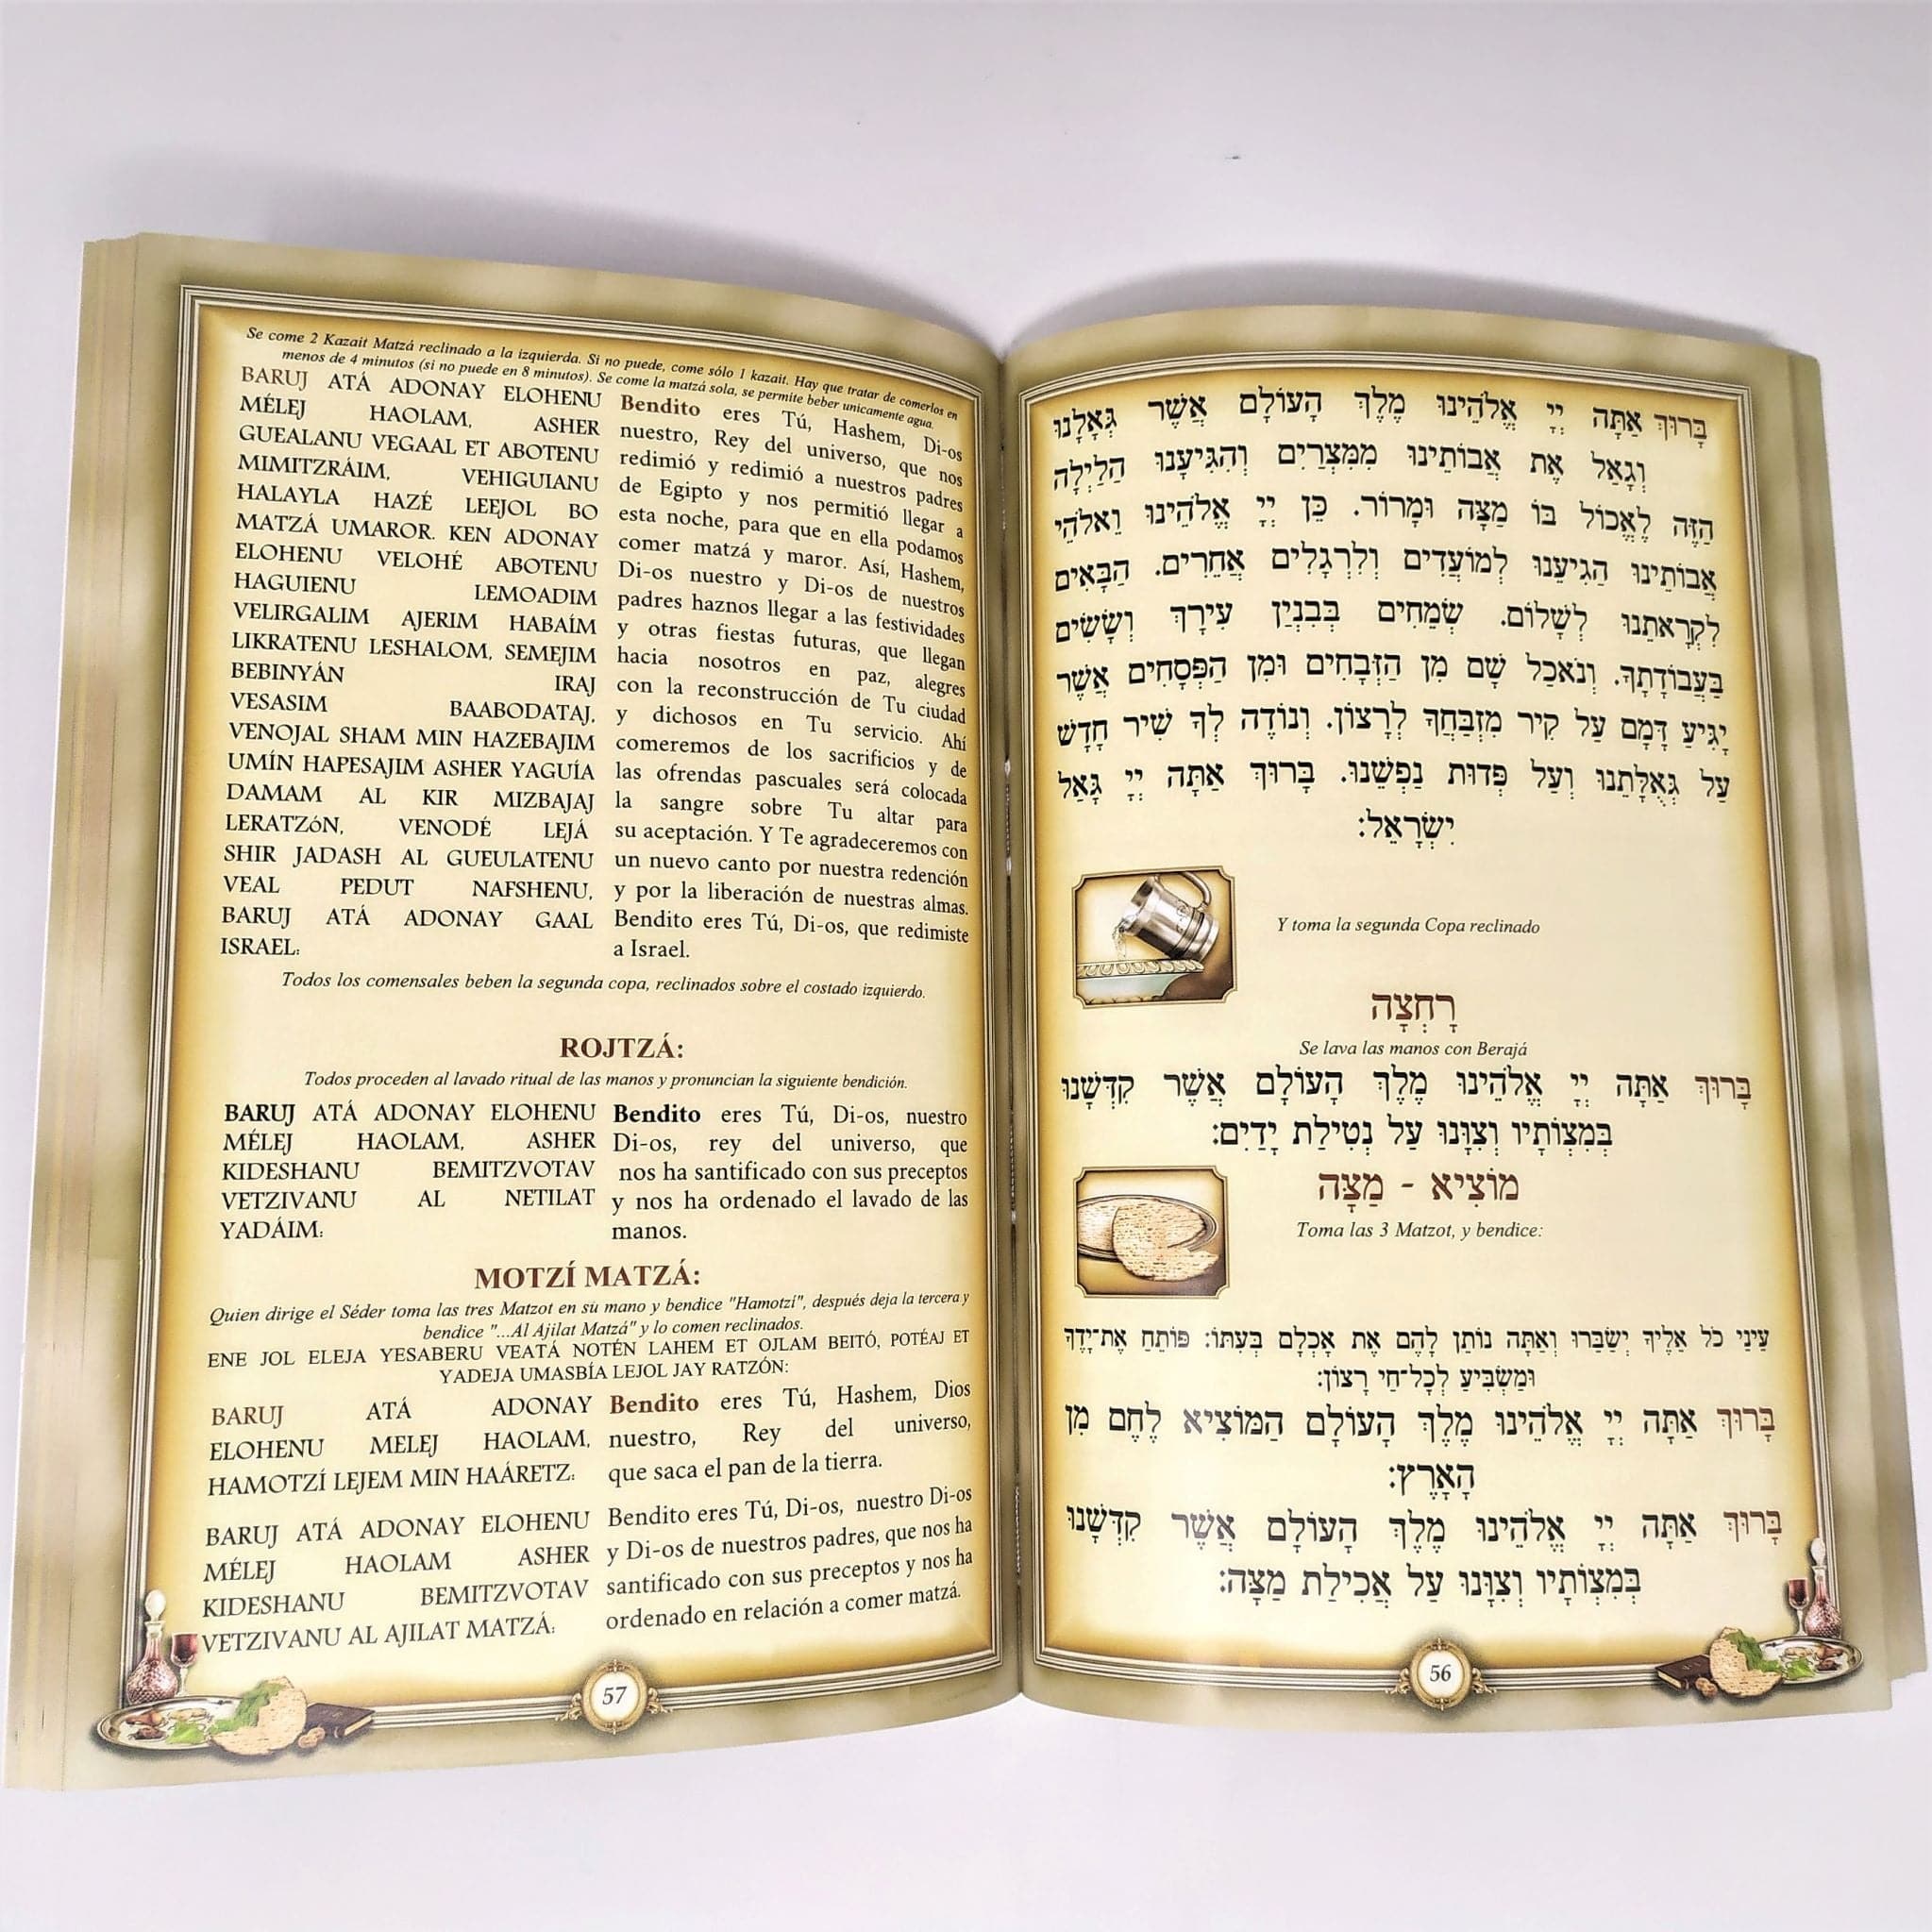 בָּרוּךְ אַתָּה יְיָ אֱלֹהֵינוּ מֶלֶךְ הָעוֹלָם אֲשֶׁר גְּאָלָנוּ
וְגָאַל אֶת אֲבוֹתֵינוּ מִמִּצְרַיִם וְהִגִּיעָנוּ הַלַּיְלָה
הַזֶּה לֶאֱכוֹל בּוֹ מַצָּה וּמָרוֹר. כֵּן יְיָ אֱלֹהֵינוּ וֵאלֹהֵי
אֲבוֹתֵינוּ הַגִּיעֵנוּ לְמוֹעֲדִים וְלִרְגָלִים אֲחֵרִים. הַבָּאִים
לִקְרָאתֵנוּ לְשָׁלוֹם. שְׂמֵחִים בְּבִנְיַן עִירָךְ וְשָׂשִׂים
בַּעֲבוֹדָתָךְ. וְנֹאכַל שָׁם מִן הַזְּבָחִים וּמִן הַפְּסָחִים אֲשֶׁר
יַגִּיעַ דָּמָם עַל קִיר מִזְבַּחֲךָ לְרָצוֹן. וְנוֹדֶה לְךָ שִׁיר חָדָשׁ
עַל גְּאֻלָּתֵנוּ וְעַל פְּדוּת נַפְשֵׁנוּ. בָּרוּךְ אַתָּה יְיָ גָּאַל
יִשְׂרָאֵל:
Y toma la segunda Copa reclinado
רָחְצָה
Se lava las manos con Berajá
בָּרוּךְ אַתָּה יְיָ אֱלֹהֵינוּ מֶלֶךְ הָעוֹלָם אֲשֶׁר קִדְּשָׁנוּ
בְּמִצְוֹתָיו וְצִוָּנוּ עַל נְטִילַת יָדַיִם:
מוֹצִיא - מַצָּה
Toma las 3 Matzot, y bendice:
עֵינֵי כֹל אֵלֶיךָ יְשַׂבֵּרוּ וְאַתָּה נוֹתֵן לָהֶם אֶת אָכְלָם בְּעִתּוֹ: פּוֹתֵחַ אֶת־יָדֶךָ
וּמַשְׂבִּיעַ לְכָל־חַי רָצוֹן:
בָּרוּךְ אַתָּה יְיָ אֱלֹהֵינוּ מֶלֶךְ הָעוֹלָם הַמּוֹצִיא לֶחֶם מִן
הָאָרֶץ:
בָּרוּךְ אַתָּה יְיָ אֱלֹהֵינוּ מֶלֶךְ הָעוֹלָם אֲשֶׁר קִדְּשָׁנוּ
בְּמִצְוֹתָיו וְצִוָּנוּ עַל אֲכִילַת מַצָּה:
56
Se come 2 Kazait Matzá reclinado a la izquierda. Si no puede, come sólo 1 kazait. Hay que tratar de comerlos en
menos de 4 minutos (si no puede en 8 minutos). Se come la matzá sola, se permite beber unicamente agua.
BARUJ ATÁ ADONAY ELOHENU
MÉLEJ HAOLAM, ASHER
GUEALANU VEGAAL ET ABOTENU
MIMITZRÁIM, VEHIGUIANU
HALAYLA HAZÉ LEEJOL BO
MATZÁ UMAROR. KEN ADONAY
ELOHENU VELOHÉ ABOTENU
HAGUIENU LEMOADIM
VELIRGALIM AJERIM HABAÍM
LIKRATENU LESHALOM, SEMEJIM
BEBINYÁN IRAJ
VESASIM BAABODATAJ,
VENOJAL SHAM MIN HAZEBAJIM
UMÍN HAPESAJIM ASHER YAGUÍA
DAMAM AL KIR MIZBAJAJ
LERATZóN, VENODÉ LEJÁ
SHIR JADASH AL GUEULATENU
VEAL PEDUT NAFSHENU,
BARUJ ATÁ ADONAY GAAL
ISRAEL:
Bendito eres Tú, Hashem, Di-os
nuestro, Rey del universo, que nos
redimió y redimió a nuestros padres
de Egipto y nos permitió llegar a
esta noche, para que en ella podamos
comer matzá y maror. Así, Hashem,
Di-os nuestro y Di-os de nuestros
padres haznos llegar a las festividades
y otras fiestas futuras, que llegan
hacia nosotros en paz, alegres
con la reconstrucción de Tu ciudad
y dichosos en Tu servicio. Ahí
comeremos de los sacrificios y de
las ofrendas pascuales será colocada
la sangre sobre Tu altar para
su aceptación. Y Te agradeceremos con
un nuevo canto por nuestra redención
y por la liberación de nuestras almas.
Bendito eres Tú, Di-os, que redimiste
a Israel.
Todos los comensales beben la segunda copa, reclinados sobre el costado izquierdo.
ROJTZÁ:
Todos proceden al lavado ritual de las manos y pronuncian la siguiente bendición.
BARUJ ATÁ ADONAY ELOHENU
MÉLEJ HAOLAM, ASHER
KIDESHANU BEMITZVOTAV
VETZIVANU AL NETILAT
YADÁIM:
Bendito eres Tú, Di-os, nuestro
Di-os, rey del universo, que
nos ha santificado con sus preceptos
y nos ha ordenado el lavado de las
manos.
MOTZÍ MATZÁ:
Quien dirige el Séder toma las tres Matzot en su mano y bendice "Hamotzí", después deja la tercera y
bendice "...Al Ajilat Matzá" y lo comen reclinados.
ENE JOL ELEJA YESABERU VEATÁ NOTÉN LAHEM ET OJLAM BEITÓ, POTÉAJ ET
YADEJA UMASBÍA LEJOL JAY RATZÓN:
BARUJ ATÁ ADONAY
ELOHENU MELEJ HAOLAM,
HAMOTZÍ LEJEM MIN HAÁRETZ:
Bendito eres Tú, Hashem, Dios
nuestro, Rey del universo,
que saca el pan de la tierra.
BARUJ ATÁ ADONAY ELOHENU
MÉLEJ HAOLAM ASHER
KIDESHANU BEMITZVOTAV
VETZIVANU AL AJILAT MATZÁ:
Bendito eres Tú, Di-os, nuestro Di-os
y Di-os de nuestros padres, que nos ha
santificado con sus preceptos y nos ha
ordenado en relación a comer matzá.
57